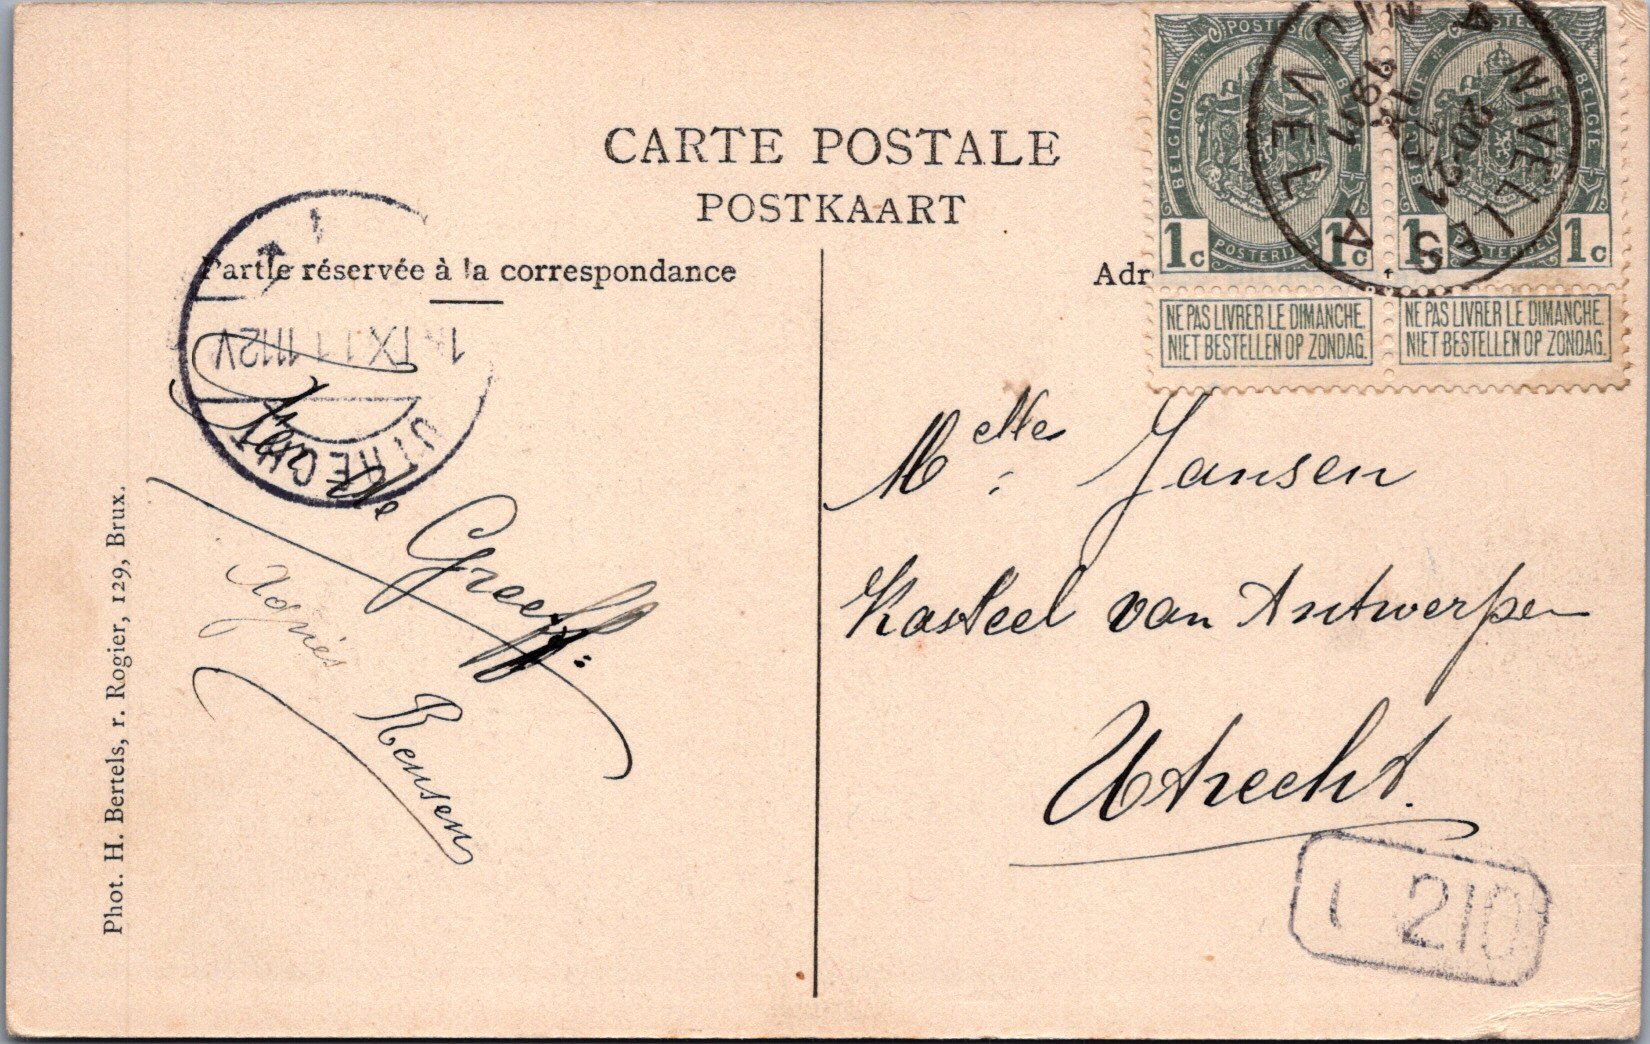 CARTE POSTALE
POSTKAART
Partie réservée à la correspondance
Adr
POSTES
BELGIQUE
BELGIË
POSTERIJEN
1c 1c
POSTES
BELGIQUE
BELGIË
POSTERIJEN
1c 1c
NE PAS LIVRER LE DIMANCHE.
NIET BESTELLEN OP ZONDAG.
NE PAS LIVRER LE DIMANCHE.
NIET BESTELLEN OP ZONDAG.
NIVELLES
20-21
1911
NIJVEL
A
UTRECHT
IX 11 1112V
de Greeff
Agnès
Rensen
Melle Jansen
Kasteel van Antwerpen
Utrecht.
210
Phot. H. Bertels, r. Rogier, 129, Brux.